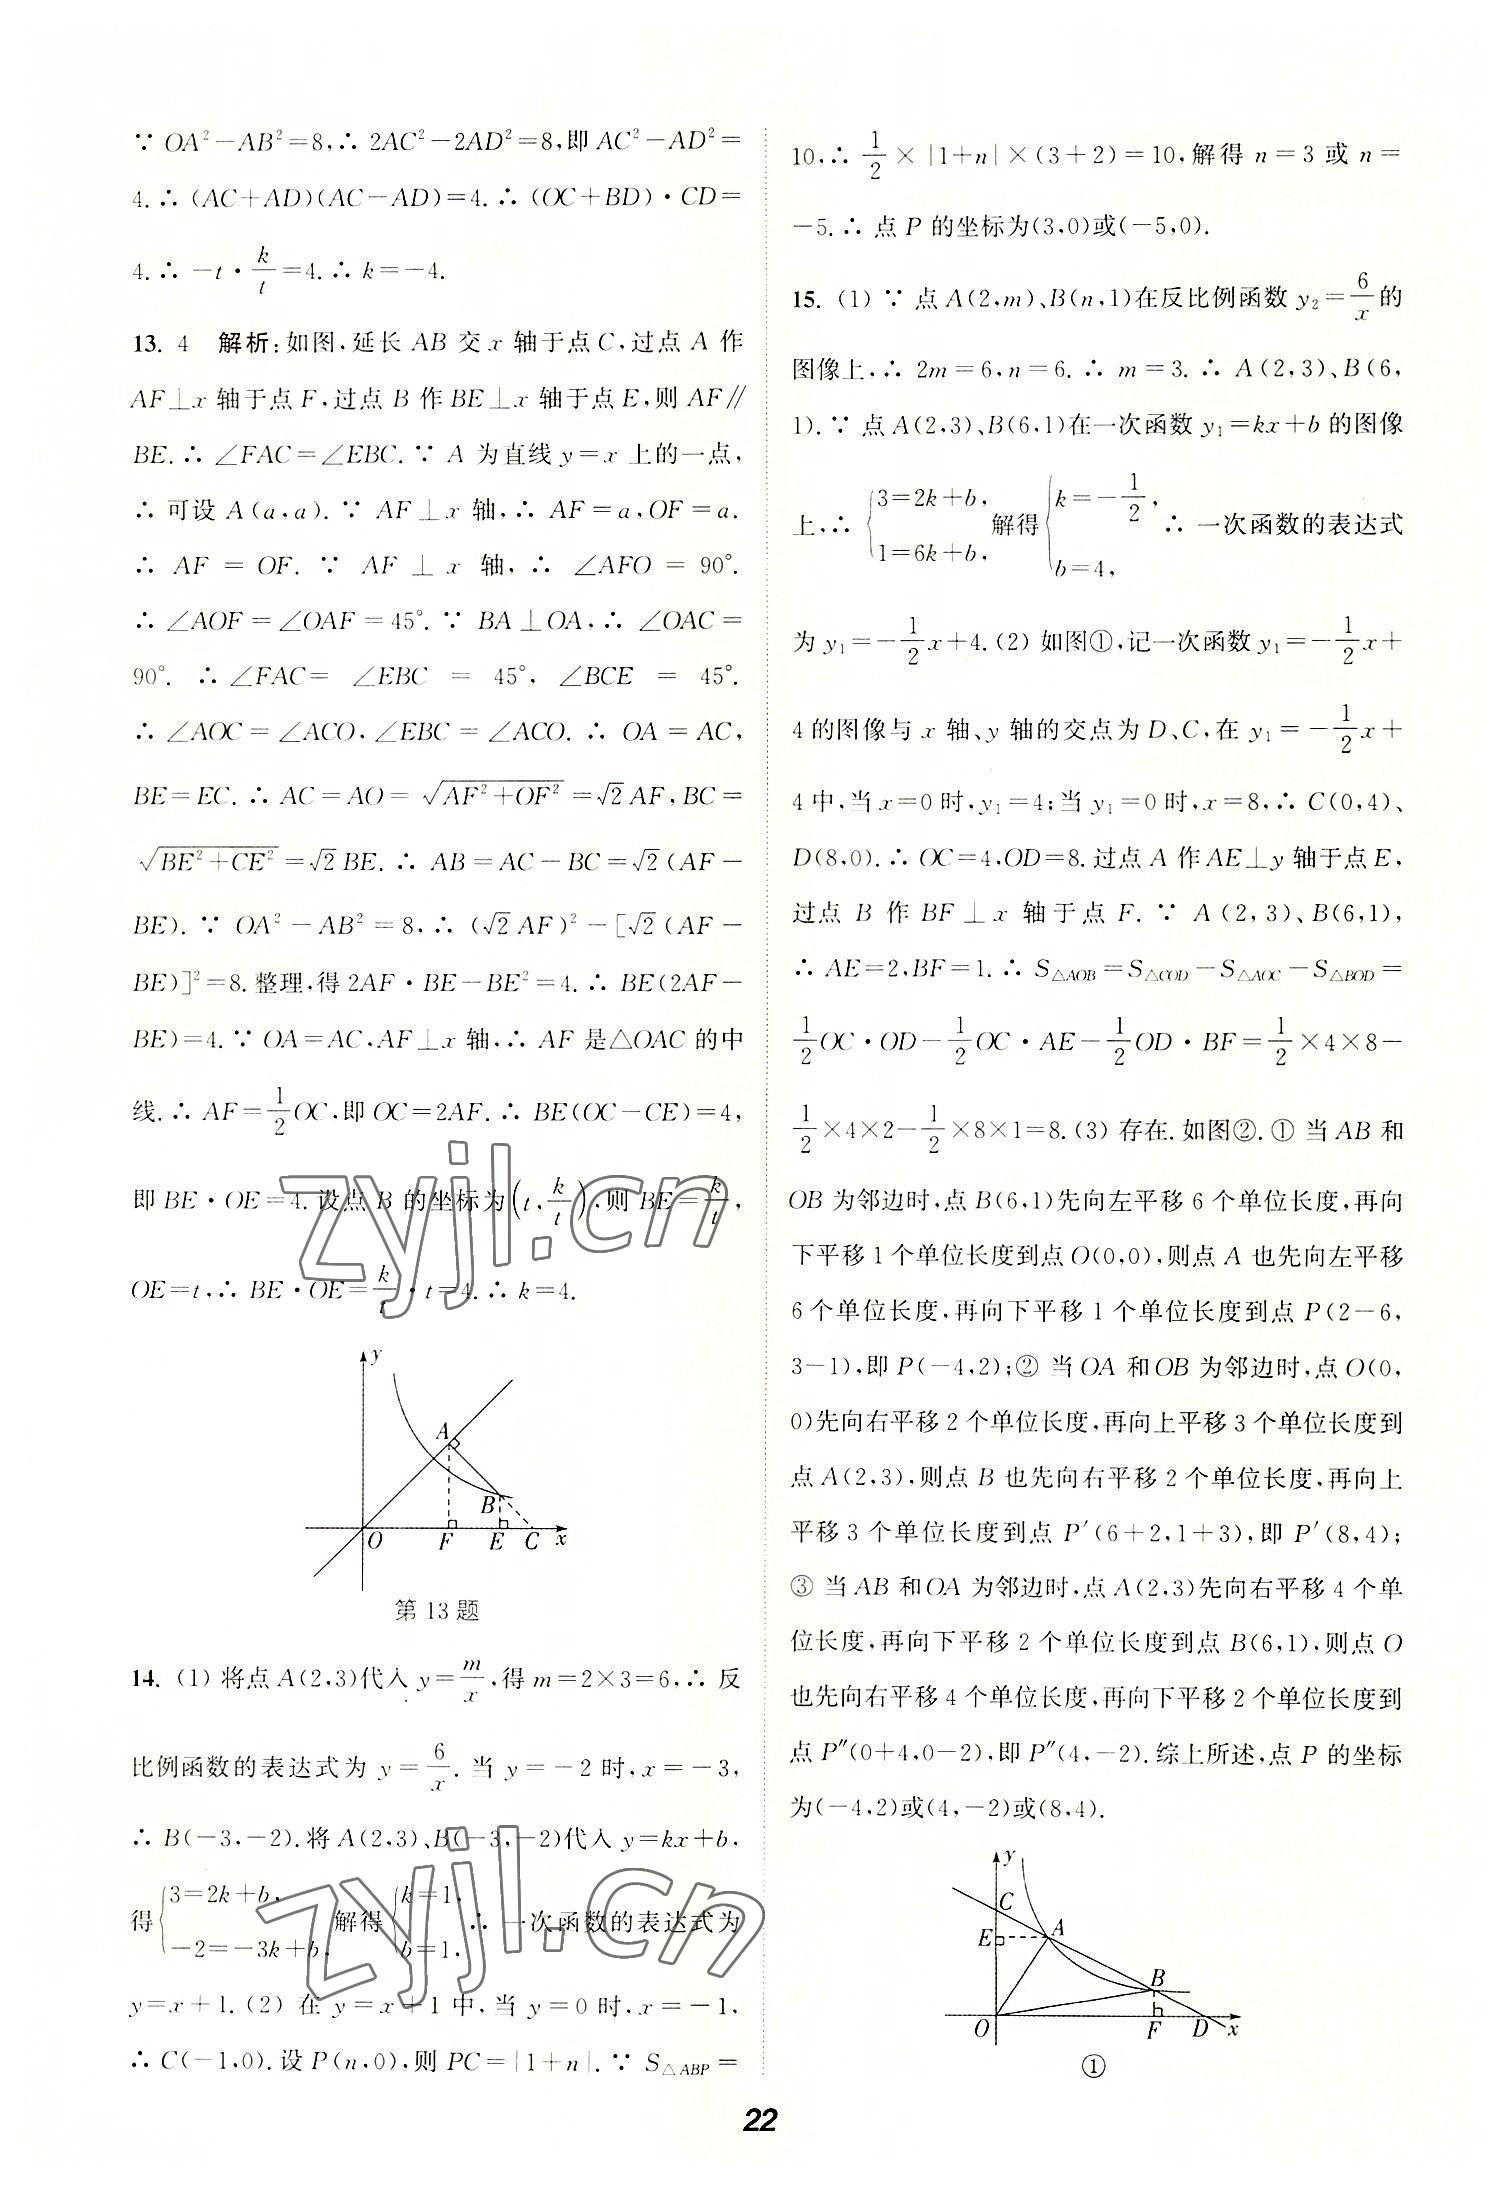 ∵ OA²－AB²＝8,∴ 2AC²－2AD²＝8,即 AC²－AD²＝
4.∴ (AC＋AD)(AC－AD)＝4.∴ (OC＋BD)·CD＝
4.∴ －t·k/t＝4.∴ k＝－4.
13. 4 解析:如图,延长 AB 交 x 轴于点 C,过点 A 作
AF⊥x 轴于点 F,过点 B 作 BE⊥x 轴于点 E,则 AF∥
BE.∴ ∠FAC＝∠EBC.∵ A 为直线 y＝x 上的一点,
∴ 可设 A(a,a).∵ AF⊥x 轴,∴ AF＝a,OF＝a.
∴ AF＝OF.∵ AF⊥x 轴,∴ ∠AFO＝90°.
∴ ∠AOF＝∠OAF＝45°.∵ BA⊥OA,∴ ∠OAC＝
90°.∴ ∠FAC＝∠EBC＝45°,∠BCE＝45°.
∴ ∠AOC＝∠ACO,∠EBC＝∠ACO.∴ OA＝AC,
BE＝EC.∴ AC＝AO＝√(AF²＋OF²)＝√2AF,BC＝
√(BE²＋CE²)＝√2BE.∴ AB＝AC－BC＝√2(AF－
BE).∵ OA²－AB²＝8,∴ (√2AF)²－[√2(AF－
BE)]²＝8.整理,得 2AF·BE－BE²＝4.∴ BE(2AF－
BE)＝4.∵ OA＝AC,AF⊥x 轴,∴ AF 是△OAC 的中
线.∴ AF＝1/2OC,即 OC＝2AF.∴ BE(OC－CE)＝4,
即 BE·OE＝4.设点 B 的坐标为(t,k/t),则 BE＝k/t,
OE＝t,∴ BE·OE＝k/t·t＝4.∴ k＝4.
y
A
B
O F E C x
第 13 题
14. (1) 将点 A(2,3)代入 y＝m/x,得 m＝2×3＝6,∴ 反
比例函数的表达式为 y＝6/x.当 y＝－2 时,x＝－3,
∴ B(－3,－2).将 A(2,3)、B(－3,－2)代入 y＝kx＋b,
得{3＝2k＋b, －2＝－3k＋b, 解得{k＝1, b＝1, ∴ 一次函数的表达式为
y＝x＋1.(2) 在 y＝x＋1 中,当 y＝0 时,x＝－1,
∴ C(－1,0).设 P(n,0),则 PC＝|1＋n|.∵ S△ABP＝
10,∴ 1/2×|1＋n|×(3＋2)＝10,解得 n＝3 或 n＝
－5.∴ 点 P 的坐标为(3,0)或(－5,0).
15. (1) ∵ 点 A(2,m)、B(n,1)在反比例函数 y₂＝6/x 的
图像上,∴ 2m＝6,n＝6.∴ m＝3.∴ A(2,3)、B(6,
1).∵ 点 A(2,3)、B(6,1)在一次函数 y₁＝kx＋b 的图像
上,∴ {3＝2k＋b, 1＝6k＋b, 解得{k＝－1/2, b＝4, ∴ 一次函数的表达式
为 y₁＝－1/2x＋4.(2) 如图①,记一次函数 y₁＝－1/2x＋
4 的图像与 x 轴、y 轴的交点为 D、C,在 y₁＝－1/2x＋
4 中,当 x＝0 时,y₁＝4;当 y₁＝0 时,x＝8,∴ C(0,4)、
D(8,0).∴ OC＝4,OD＝8.过点 A 作 AE⊥y 轴于点 E,
过点 B 作 BF⊥x 轴于点 F.∵ A(2,3)、B(6,1),
∴ AE＝2,BF＝1.∴ S△AOB＝S△COD－S△AOC－S△BOD＝
1/2OC·OD－1/2OC·AE－1/2OD·BF＝1/2×4×8－
1/2×4×2－1/2×8×1＝8.(3) 存在.如图②.① 当 AB 和
OB 为邻边时,点 B(6,1)先向左平移 6 个单位长度,再向
下平移 1 个单位长度到点 O(0,0),则点 A 也先向左平移
6 个单位长度,再向下平移 1 个单位长度到点 P(2－6,
3－1),即 P(－4,2);② 当 OA 和 OB 为邻边时,点 O(0,
0)先向右平移 2 个单位长度,再向上平移 3 个单位长度到
点 A(2,3),则点 B 也先向右平移 2 个单位长度,再向上
平移 3 个单位长度到点 P′(6＋2,1＋3),即 P′(8,4);
③ 当 AB 和 OA 为邻边时,点 A(2,3)先向右平移 4 个单
位长度,再向下平移 2 个单位长度到点 B(6,1),则点 O
也先向右平移 4 个单位长度,再向下平移 2 个单位长度到
点 P″(0＋4,0－2),即 P″(4,－2).综上所述,点 P 的坐标
为(－4,2)或(4,－2)或(8,4).
y
C
E A
B
O F D x
①
22
zyjl.cn
zyjl.cn